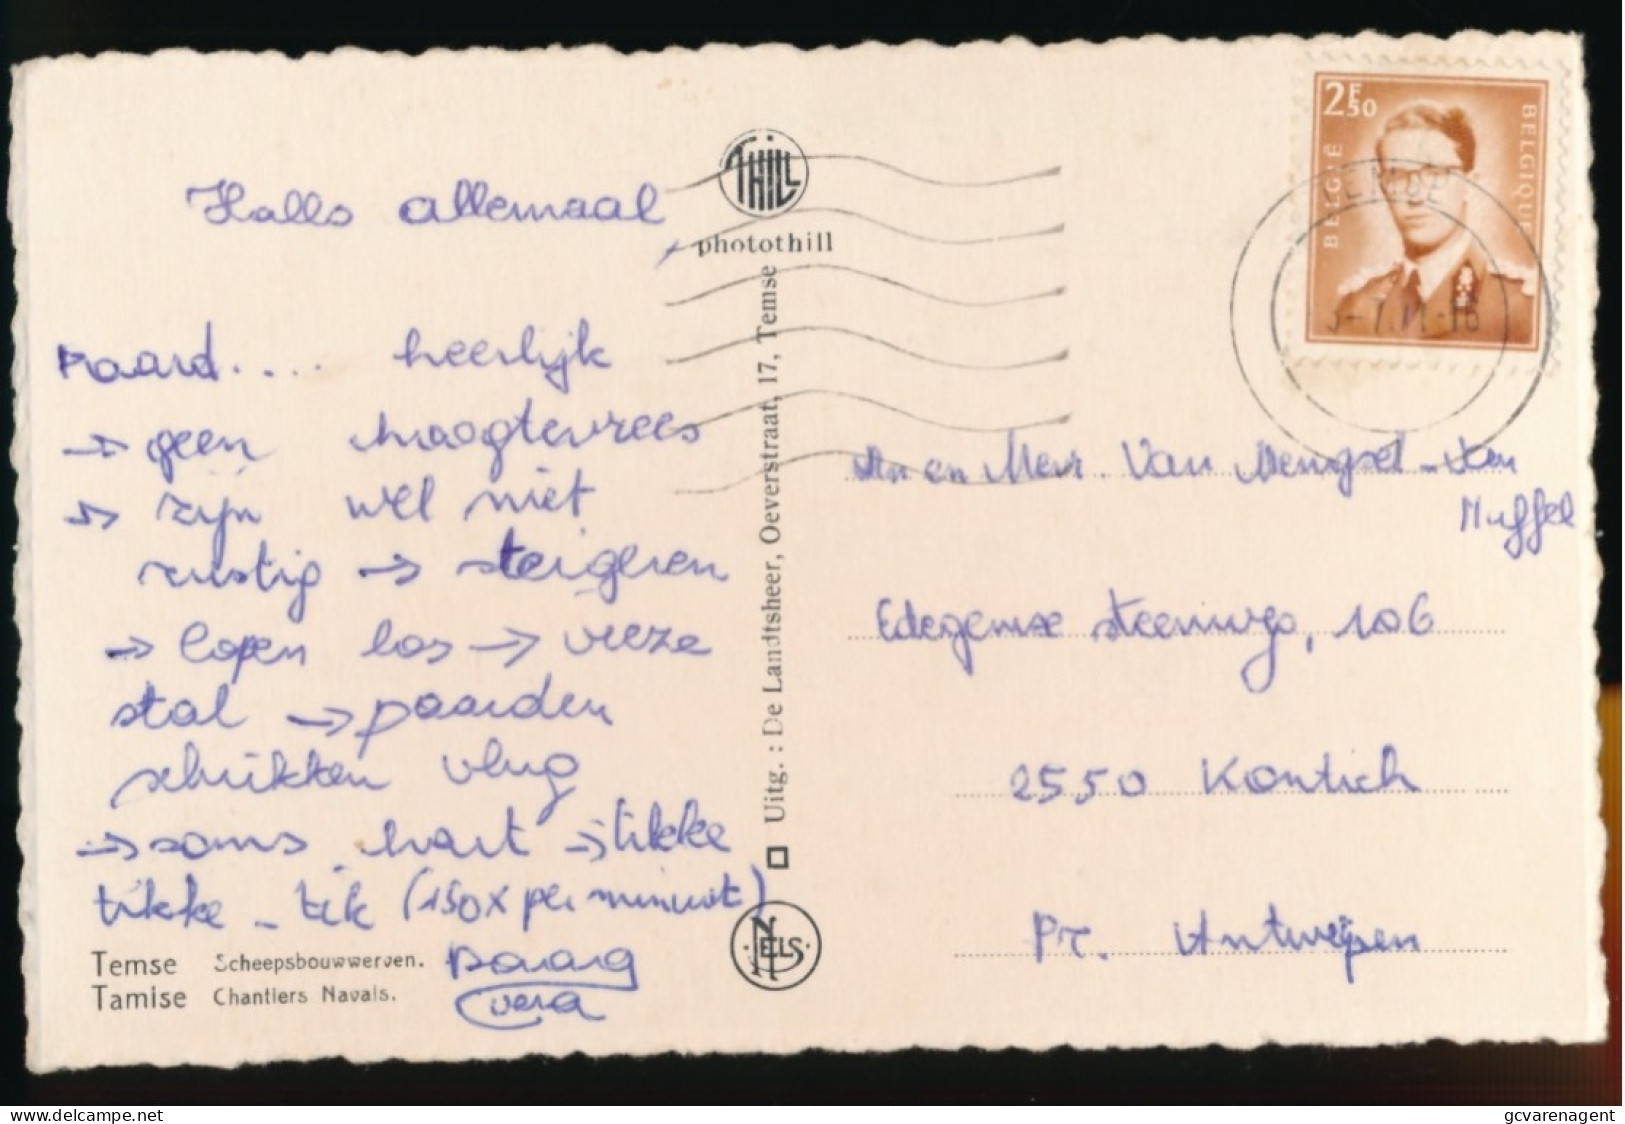 Hallo allemaal
Paard.... heerlijk
→ geen hoogtevrees
→ zijn wel niet
rustig → steigeren
→ lopen los → vieze
stal → paarden
schrikken vlug
→ soms hart → tikke
tikke - tik (150x per minuut)
Daaag
Vera
Temse Scheepsbouwwerven.
Tamise Chantiers Navals.
THILL
photothill
Uitg. : De Landtsheer, Oeverstraat, 17, Temse
NELS
2F50
BELGIË
BELGIQUE
TEMSE
Mr en Mevr. Van Mengsel - Van
Muffel
Edegemse steenweg, 106
2550 Kontich
Pr. Antwerpen
www.delcampe.net
gcvarenagent